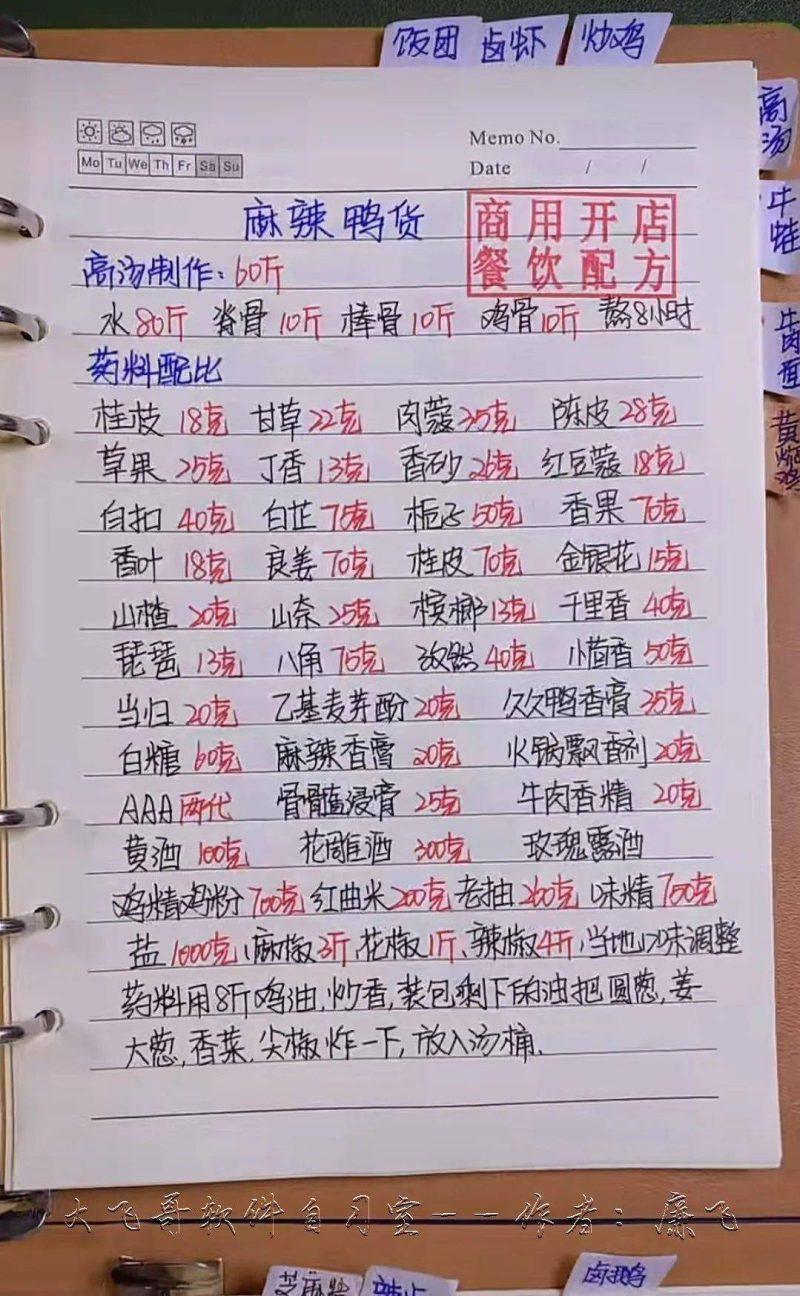 饭团 卤虾 炒鸡
高汤
牛蛙
牛肉面
黄焖鸡
Memo No.
Mo Tu We Th Fr Sa Su
Date / /
麻辣鸭货
商用开店
餐饮配方
高汤制作:60斤
水80斤 脊骨10斤 棒骨10斤 鸡骨10斤 熬8小时
药料配比
桂枝 18克 甘草22克 肉蔻35克 陈皮28克
草果 25克 丁香13克 香砂26克 红豆蔻18克
白扣 40克 白芷75克 栀子50克 香果76克
香叶 18克 良姜70克 桂皮70克 金银花15克
山楂 20克 山奈25克 槟榔13克 千里香40克
琵琶 13克 八角75克 孜然40克 小茴香50克
当归 20克 乙基麦芽酚20克 久久鸭香膏35克
白糖 60克 麻辣香膏 20克 火锅飘香剂20克
AAA两代 骨髓浸膏 25克 牛肉香精 20克
黄酒 100克 花雕酒 300克 玫瑰露酒
鸡精鸡粉700克 红曲米200克 老抽260克 味精700克
盐1000克,麻椒3斤,花椒1斤、辣椒4斤,当地口味调整
药料用8斤鸡油,炒香,装包剩下的油把圆葱,姜
大葱,香菜,尖椒炸一下,放入汤桶.
大飞哥软件自习室--作者:廉飞
卤鹅